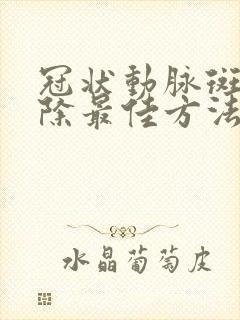 冠状動脉斑
除最佳方法
水晶葡萄皮